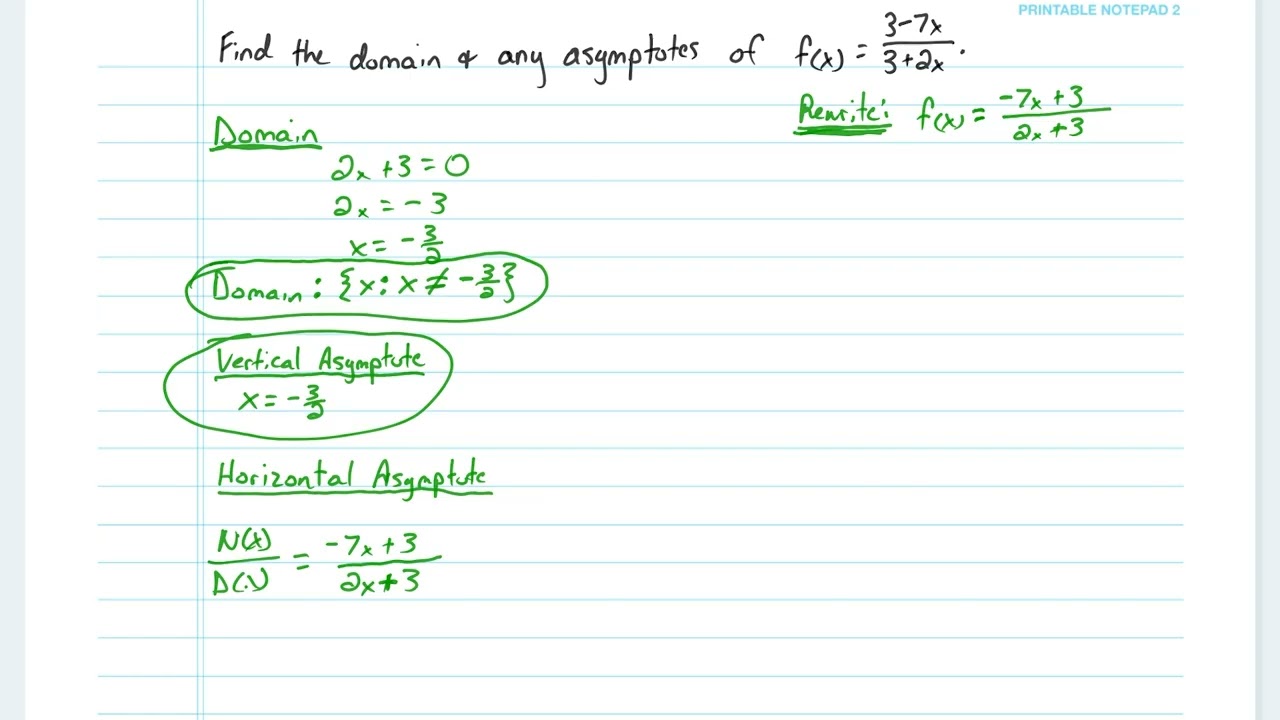 PRINTABLE NOTEPAD 2
Find the domain & any asymptotes of f(x) = (3-7x)/(3+2x).
Rewrite: f(x) = (-7x+3)/(2x+3)
Domain
2x+3=0
2x=-3
x=-3/2
Domain: {x:x≠-3/2}
Vertical Asymptote
x=-3/2
Horizontal Asymptote
N(x)/D(x) = (-7x+3)/(2x+3)